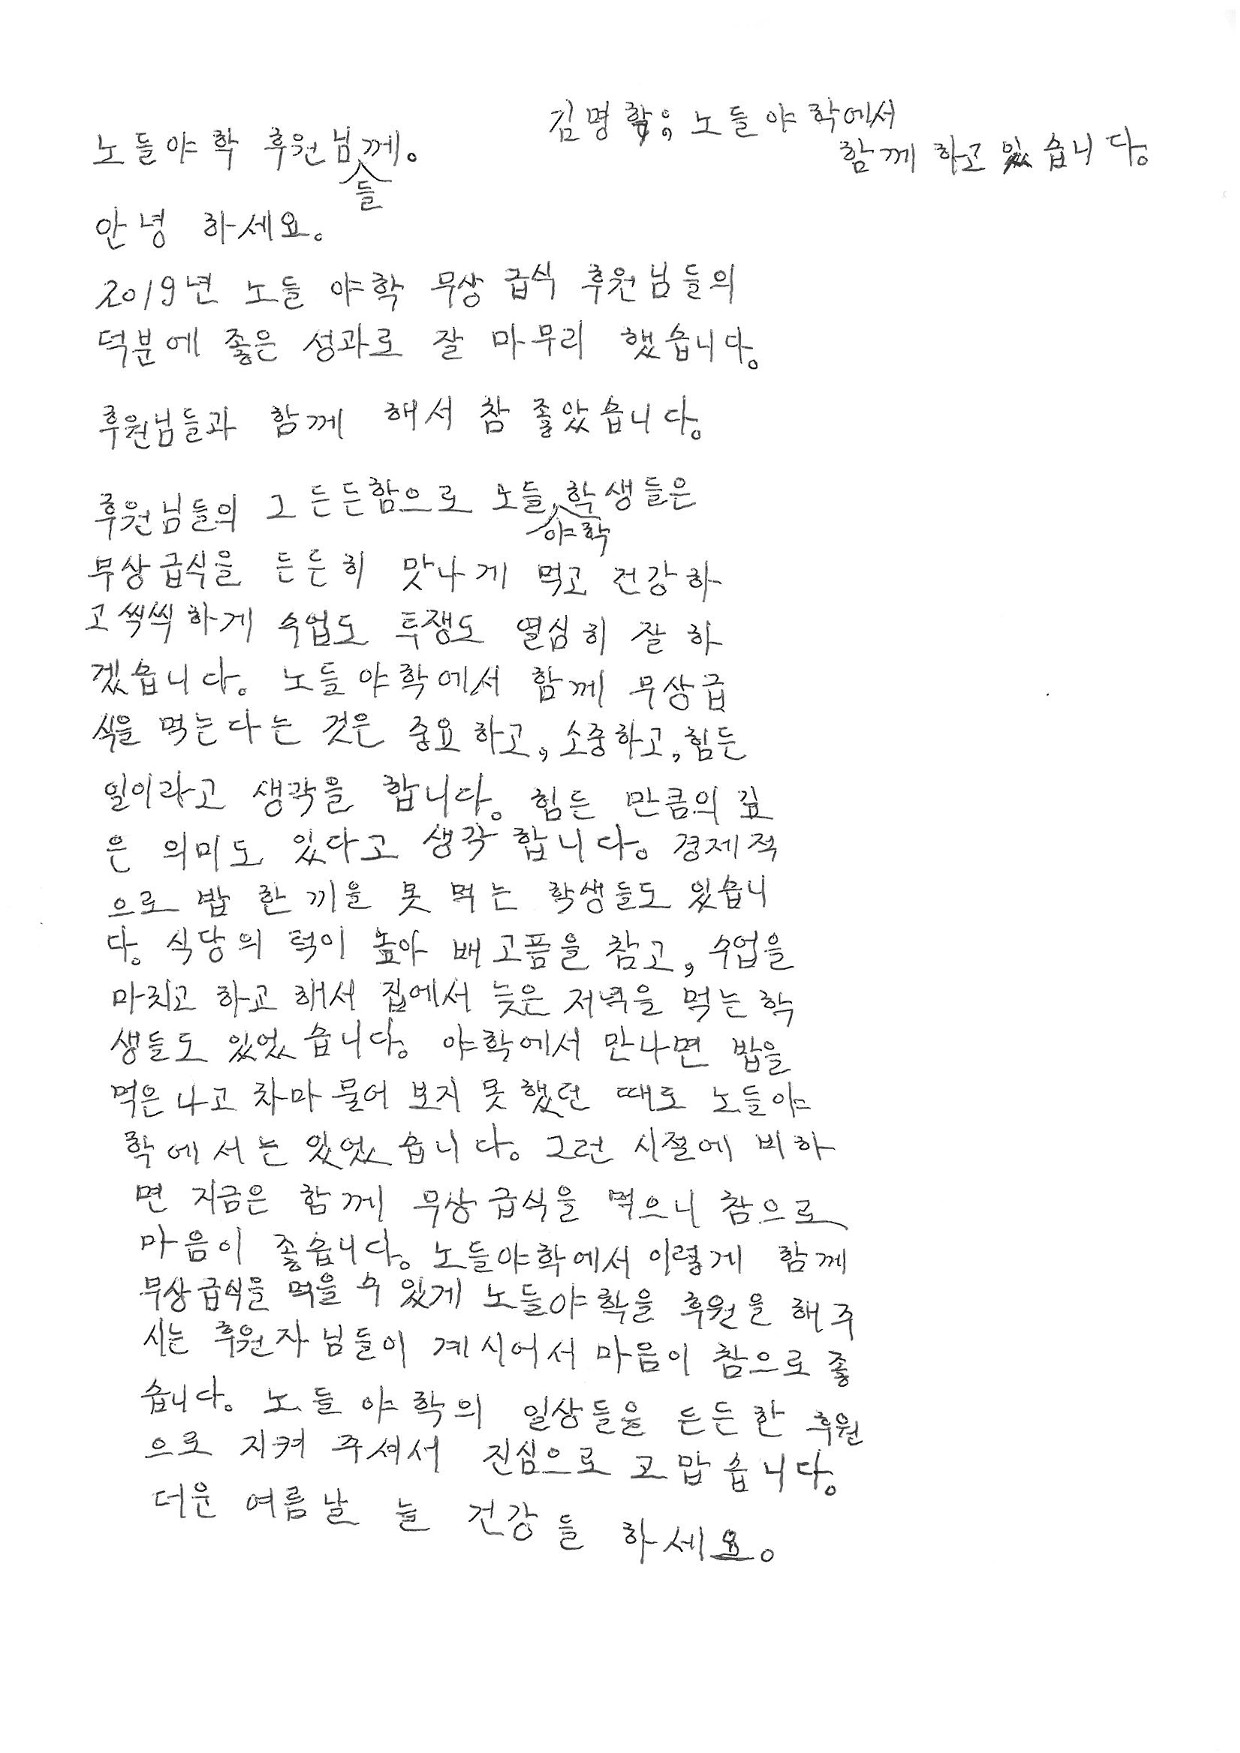 김명학; 노들야학에서
함께 하고 있습니다.
노들야학 후원님들께.
안녕 하세요.
2019년 노들 야학 무상 급식 후원님들의
덕분에 좋은 성과로 잘 마무리 했습니다.
후원님들과 함께 해서 참 좋았습니다.
후원님들의 그 든든함으로 노들야학 학생들은
무상급식을 든든히 맛나게 먹고 건강하
고 씩씩하게 수업도 투쟁도 열심히 잘 하
겠습니다. 노들야학에서 함께 무상급
식을 먹는다는 것은 중요하고, 소중하고, 힘든
일이라고 생각을 합니다. 힘든 만큼의 깊
은 의미도 있다고 생각 합니다. 경제적
으로 밥 한 끼을 못 먹는 학생들도 있습니
다. 식당의 턱이 높아 배고픔을 참고, 수업을
마치고 하고 해서 집에서 늦은 저녁을 먹는 학
생들도 있었습니다. 야학에서 만나면 밥을
먹은나고 차마 물어 보지 못했던 때도 노들야
학에서는 있었습니다. 그런 시절에 비하
면 지금은 함께 무상급식을 먹으니 참으로
마음이 좋습니다. 노들야학에서 이렇게 함께
무상급식을 먹을 수 있게 노들야학을 후원을 해주
시는 후원자님들이 계시어서 마음이 참으로 좋
습니다. 노들 야학의 일상들을 든든한 후원
으로 지켜 주셔서 진심으로 고맙습니다.
더운 여름날 늘 건강들 하세요.